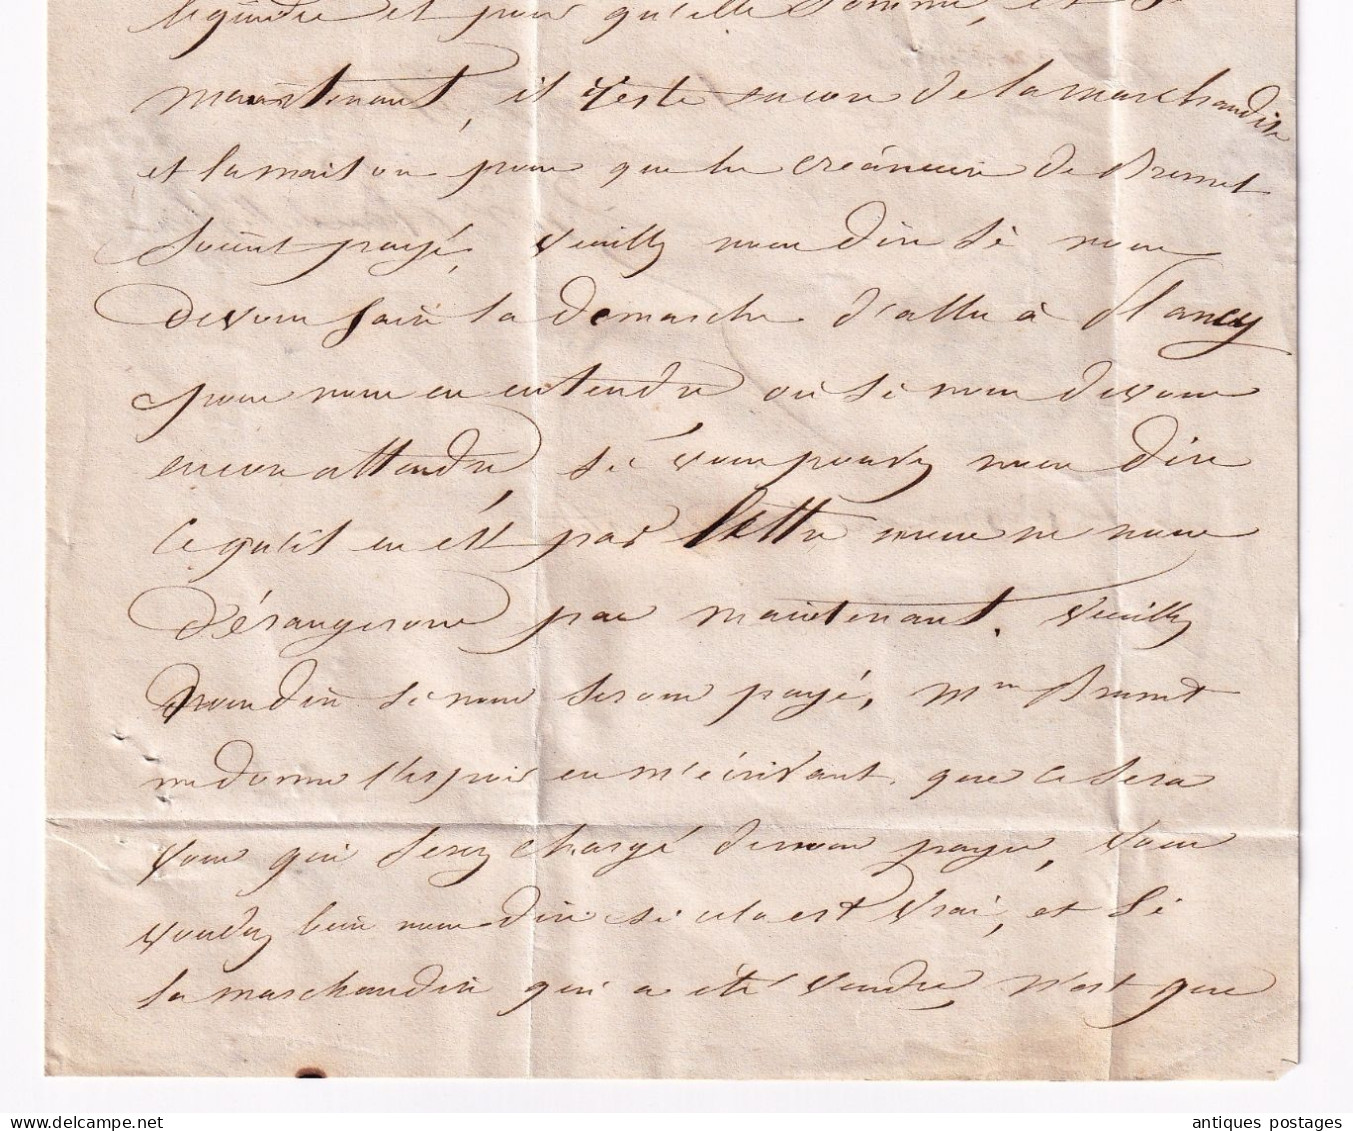 liquidre et pour qu'elle somme, et si
maintenant, il reste encore de la marchandise
et la maison pour que les créancier de Brunet
soient payé, veuillez nous dire si nous
devons faire la demarche d'aller à Nancy
pour nous en entendre où si nous devons
encore attendre, si vous pouvez nous dire
ce qu'il en est par lettre nous ne nous
dérangerons pas maintenant. veuillez
nous dire si nous serons payé, Mme Brunet
me donne l'espoir en m'écrivant que ce sera
vous qui serez chargé de nous payer, vous
voudrez bien nous dire si cela est vrai, et si
la marchandise qui a été vendre, n'est que
www.delcampe.net
antiques postages